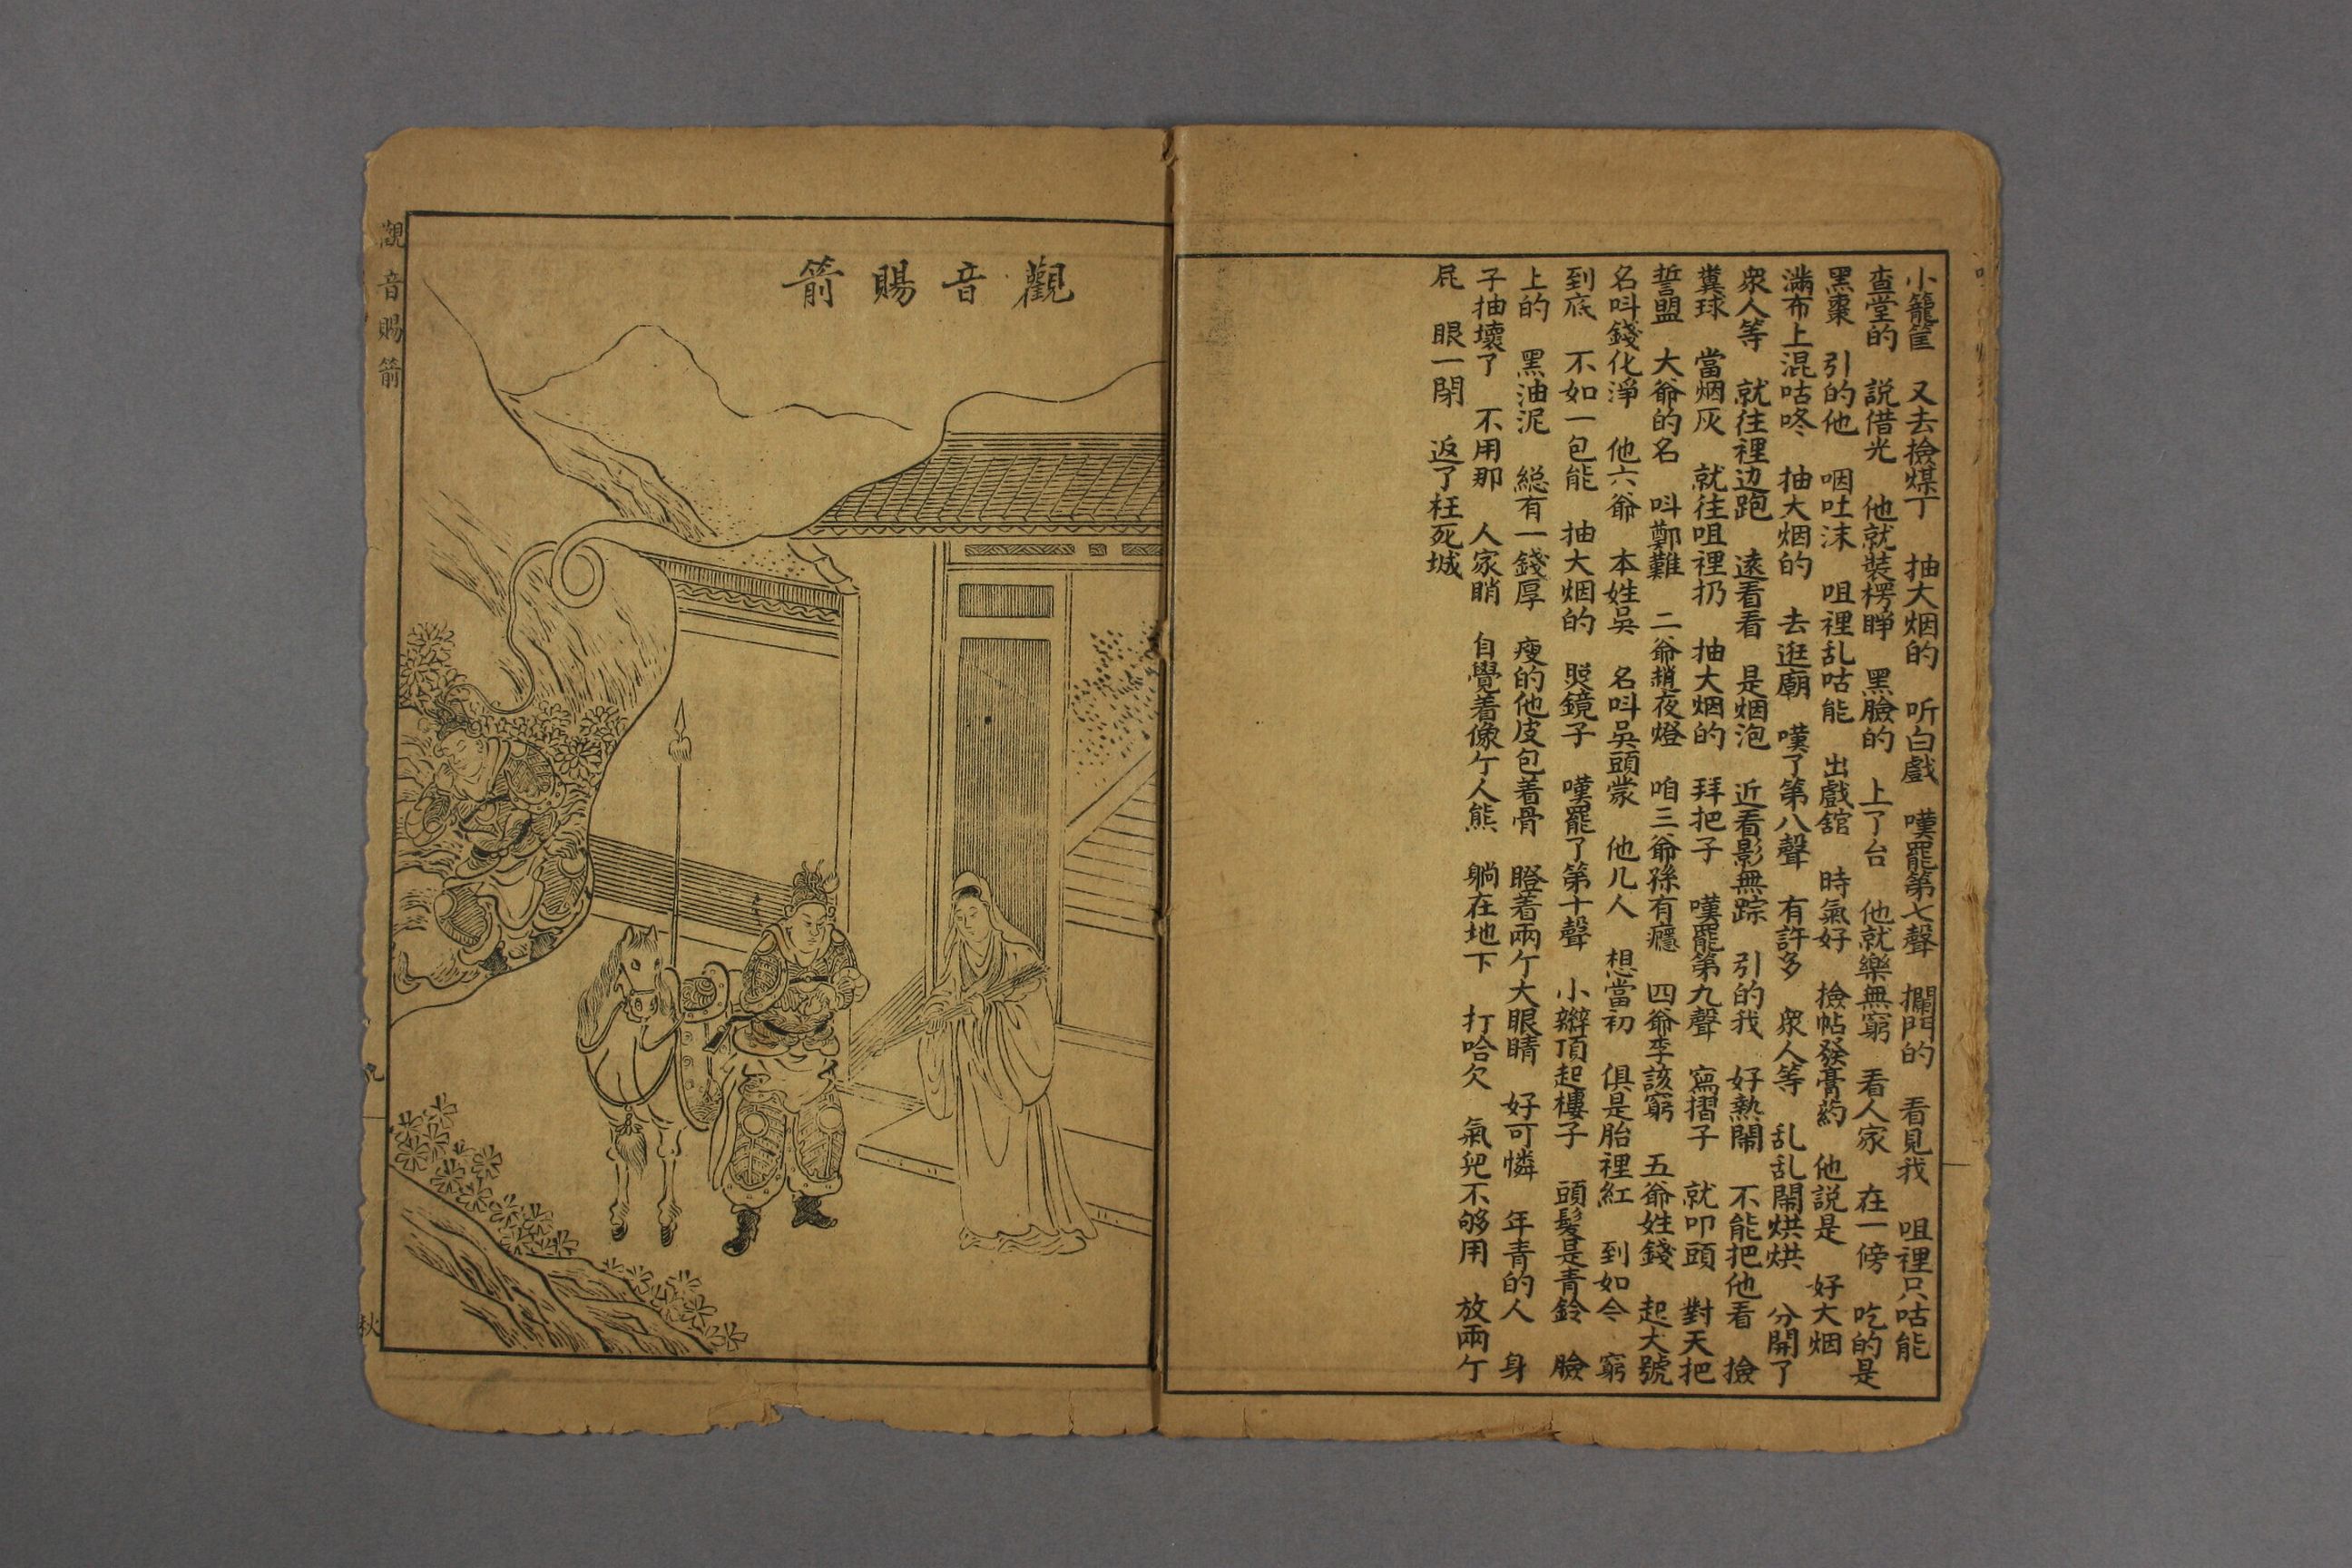 小籠筐 又去撿煤丁 抽大烟的 听白戲 嘆罷第七聲 攔門的 看見我 咀裡只咕能
查堂的 説借光 他就裝楞睜 黑臉的 上了台 他就樂無窮 看人家 在一傍 吃的是
黑棗 引的他 咽吐沫 咀裡乱咕能 出戲舘 時氣好 撿帖發膏葯 他説是 好大烟
滿布上混咕咚 抽大烟的 去逛廟 嘆了第八聲 有許多 衆人等 乱乱閙烘烘 分開了
衆人等 就往裡边跑 遠看看 是烟泡 近看影無踪 引的我 好熱閙 不能把他看 撿
糞球 當烟灰 就往咀裡扔 抽大烟的 拜把子 嘆罷第九聲 寫摺子 就叩頭 對天把
誓盟 大爺的名 呌鄭難 二爺趙夜燈 咱三爺孫有癮 四爺李該窮 五爺姓錢 起大號
名呌錢化淨 他六爺 本姓吳 名呌吳頭蒙 他儿人 想當初 俱是胎裡紅 到如今 窮
到底 不如一包能 抽大烟的 照鏡子 嘆罷了第十聲 小辮頂起樓子 頭髮是青鈴 臉
上的 黑油泥 総有一錢厚 瘦的他皮包着骨 瞪着兩亇大眼睛 好可憐 年青的人 身
子抽壞了 不用那 人家睄 自覺着像亇人熊 躺在地下 打哈欠 氣児不够用 放兩亇
屁 眼一閉 返了枉死城
觀音賜箭
觀音賜箭
九
秋